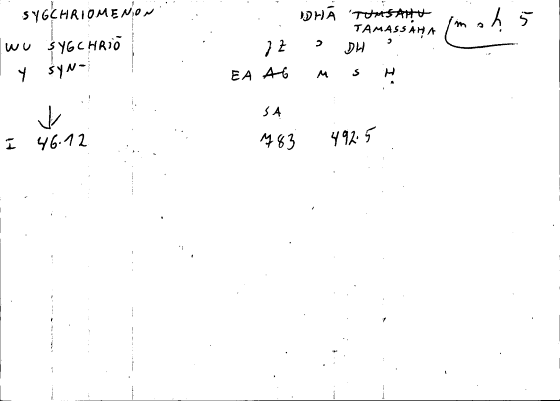 SYGCHRIOMENON IDHĀ TUMSAḤU m s ḥ 5
TAMASSAḤA
WU SYGCHRIŌ JZ ' DH '
Y SYN- EA AG M S Ḥ
SA
I 46.12 783 492.5